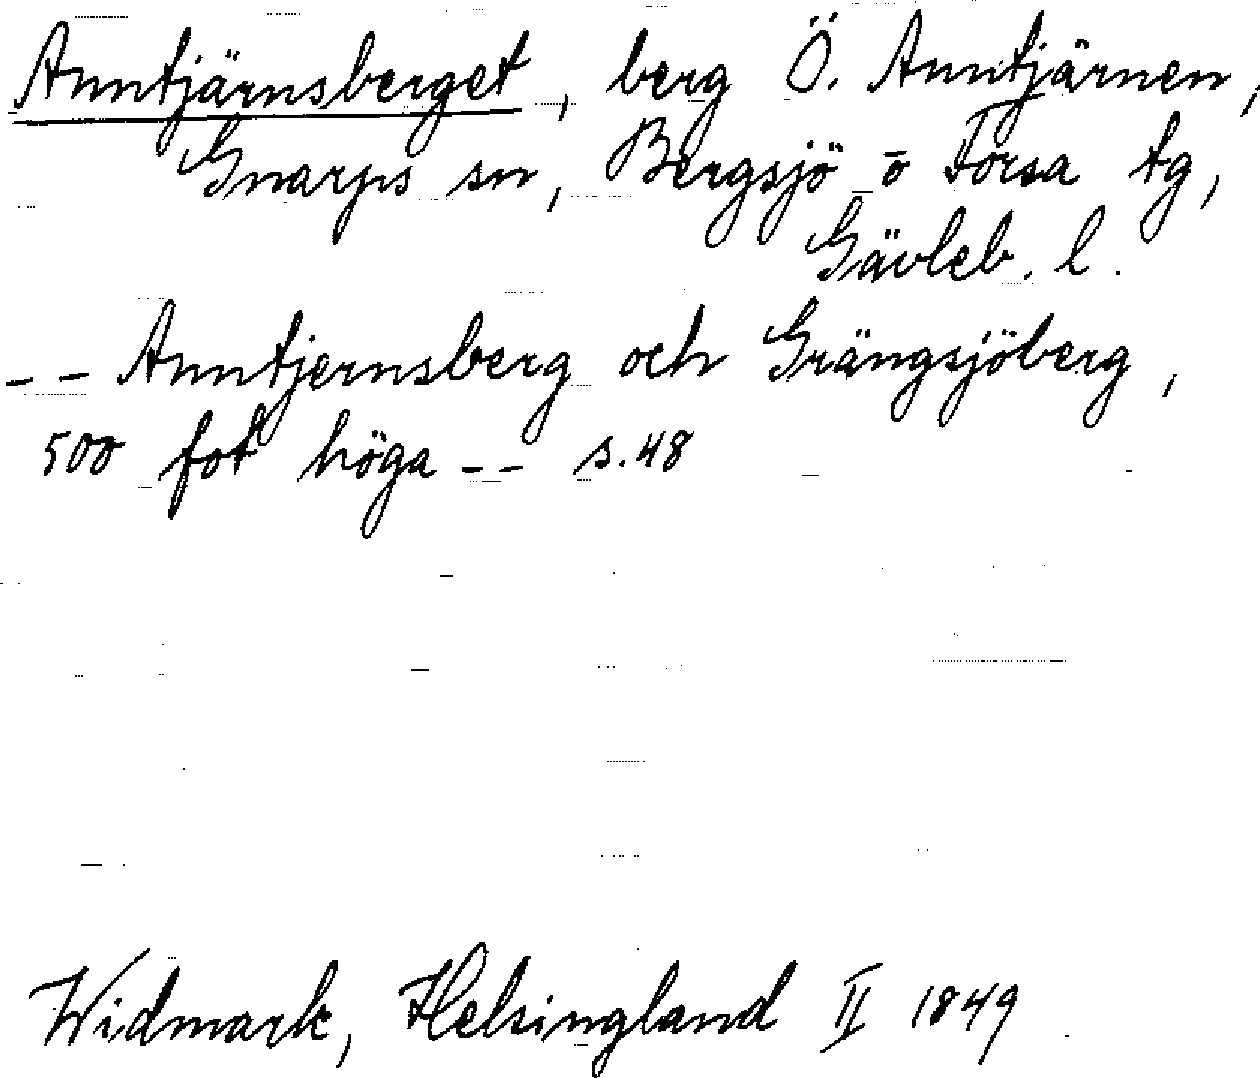 Anntjärnsberget, berg Ö. Anntjärnen,
Gnarps sn, Bergsjö o Forsa tg,
Gävleb. l.
-- Anntjernsberg och Grängsjöberg,
500 fot höga -- s.48
Widmark, Helsingland II 1849